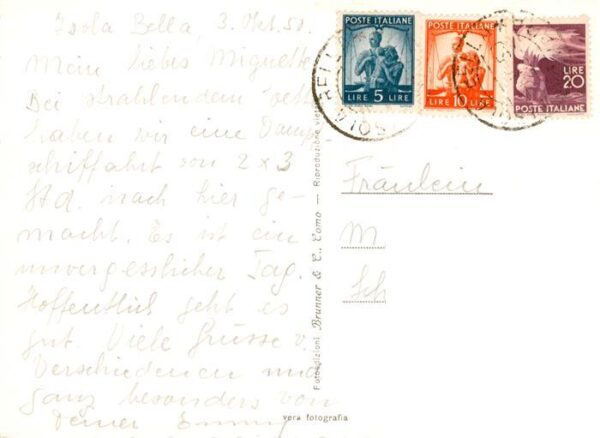 Isola Bella 3. Okt. 50.
Mein liebes Miguette
Bei strahlendem Wett
haben wir eine Dampf-
schiffahrt von 2 x 3
Std. nach hier ge-
macht. Es ist ein
unvergesslicher Tag.
Hoffentlich geht es
gut. Viele Grüsse v.
Verschiedenen und
ganz besonders von
Deiner Emmy
Fotoedizioni Brunner & C., Como — Riproduzione viet
vera fotografia
POSTE ITALIANE
LIRE 5 LIRE
POSTE ITALIANE
LIRE 10 LIRE
LIRE
20
POSTE ITALIANE
ISOLA BELLA
Fräulein
M
Sch